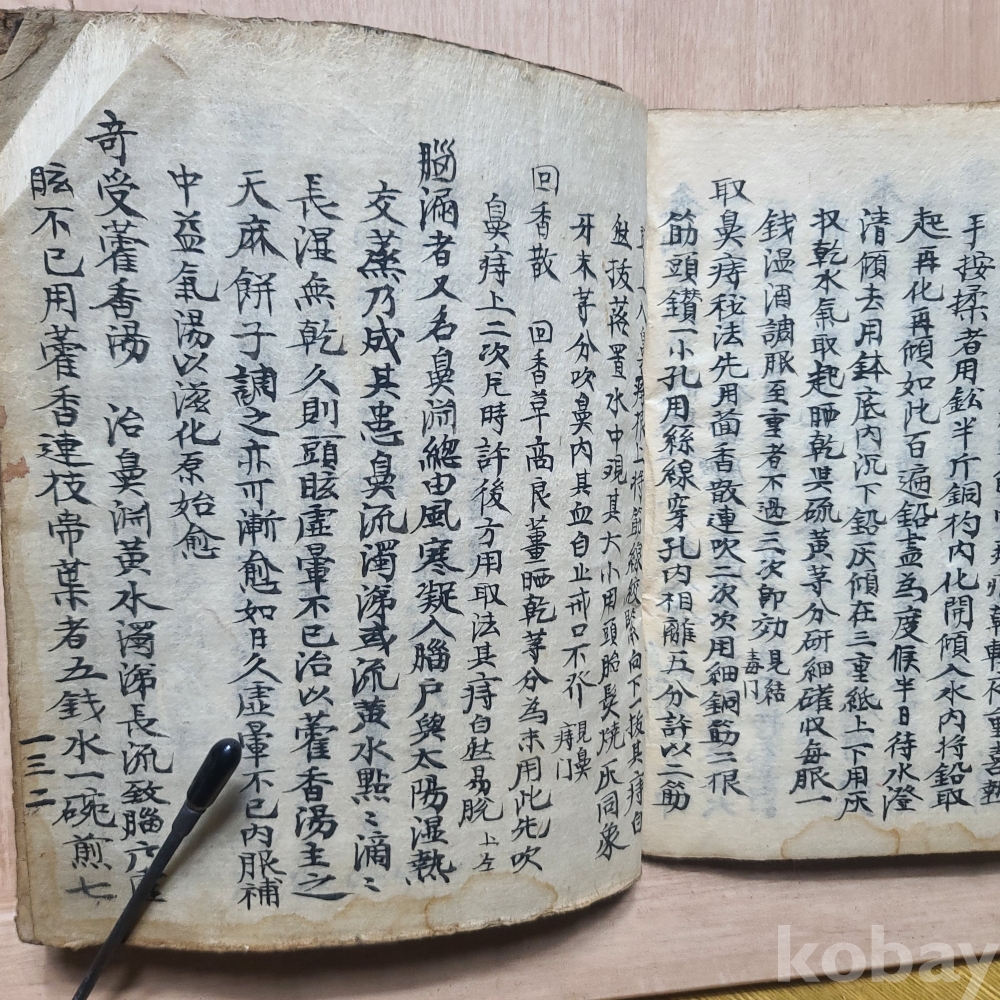 手按揉者用鈆半斤銅杓內化開傾入水內將鉛取
起再化再傾如此百遍鉛盡為度候半日待水澄
清傾去用鉢底內沉下鉛灰傾在三重紙上下用灰
收乾水氣取起晒乾與硫黃等分研細確收每服一
錢溫酒調服至重者不過三次即効 見結毒门
取鼻痔秘法先用茴香散連吹二次次用細銅筋二根
筋頭鑚一小孔用絲線穿孔內相離五分許以二筋
根上將筋線絞緊向下一拔其痔自
然拔落置水中現其大小用頭胎髮燒灰同象
牙末等分吹鼻內其血自止戒口不發 見鼻痔门
回香散 回香草高良薑晒乾等分為末用此先吹
鼻痔上二次片時許後方用取法其痔自然易脫 上仝
腦漏者又名鼻淵總由風寒凝入腦戶與太陽湿熱
交蒸乃成其患鼻流濁涕或流黃水點〻滴〻
長湿無乾久則頭眩虛暈不已治以藿香湯主之
天麻餅子調之亦可漸愈如日久虛暈不已內服補
中益氣湯以滋化原始愈
奇受藿香湯 治鼻淵黃水濁涕長流致腦
眩不已用藿香連枝帶葉者五錢水一碗煎七
一三二
kobay